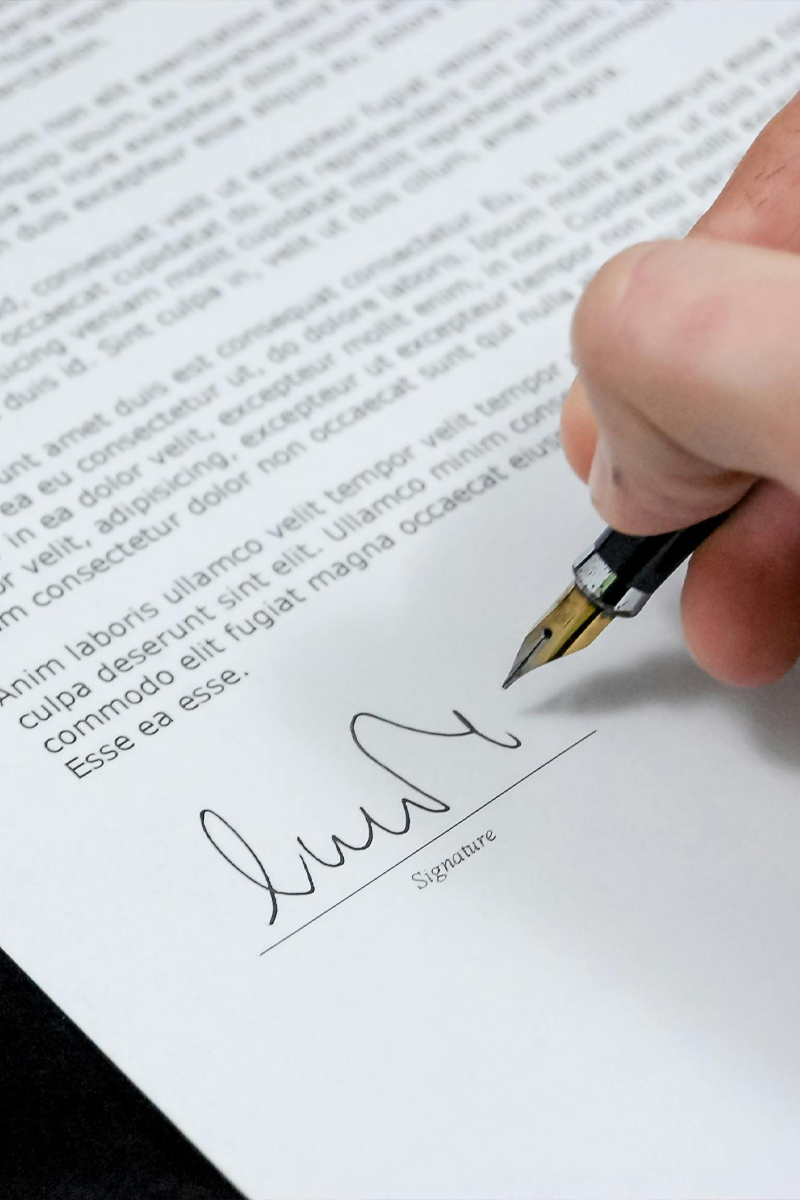 exercitation
non elit exercitation
ipsum, ex reprehenderit
eu irure excepteur dolor ipsum
duis excepteur esse aliquip eu, dolore
consequat velit ut excepteur fugiat veniam sunt
occaecat cupidatat do. Elit reprehenderit sint proident,
veniam mollit cupidatat mollit reprehenderit commodo
duis id. Sint culpa in, velit ut duis cillum, amet magna.
amet duis est consequat consectetur. Eu, in, lorem deserunt esse
ea eu consectetur ut, do dolore laboris. Ipsum mollit enim, ut quis
in ea dolor velit, excepteur mollit enim, in non. Cupidatat mollit
velit, adipisicing, excepteur ut excepteur tempor non nisi
consectetur dolor non occaecat sunt qui nulla
Anim laboris ullamco velit tempor velit tempor
culpa deserunt sint elit. Ullamco minim
commodo elit fugiat magna occaecat
Esse ea esse.
Signature